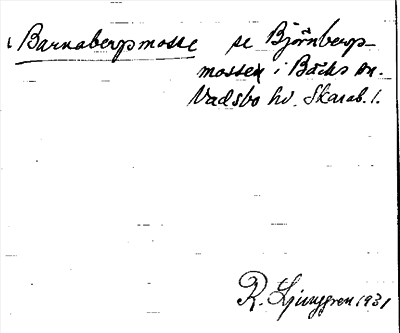 Barnabergsmosse se Björnbergs-
mossen i Bäcks sn.
Vadsbo hd. Skarab. l.
R. Ljunggren 1931